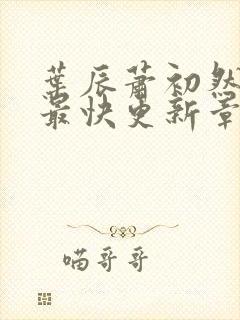 葉辰蕭初然
最快更新章
喵哥哥